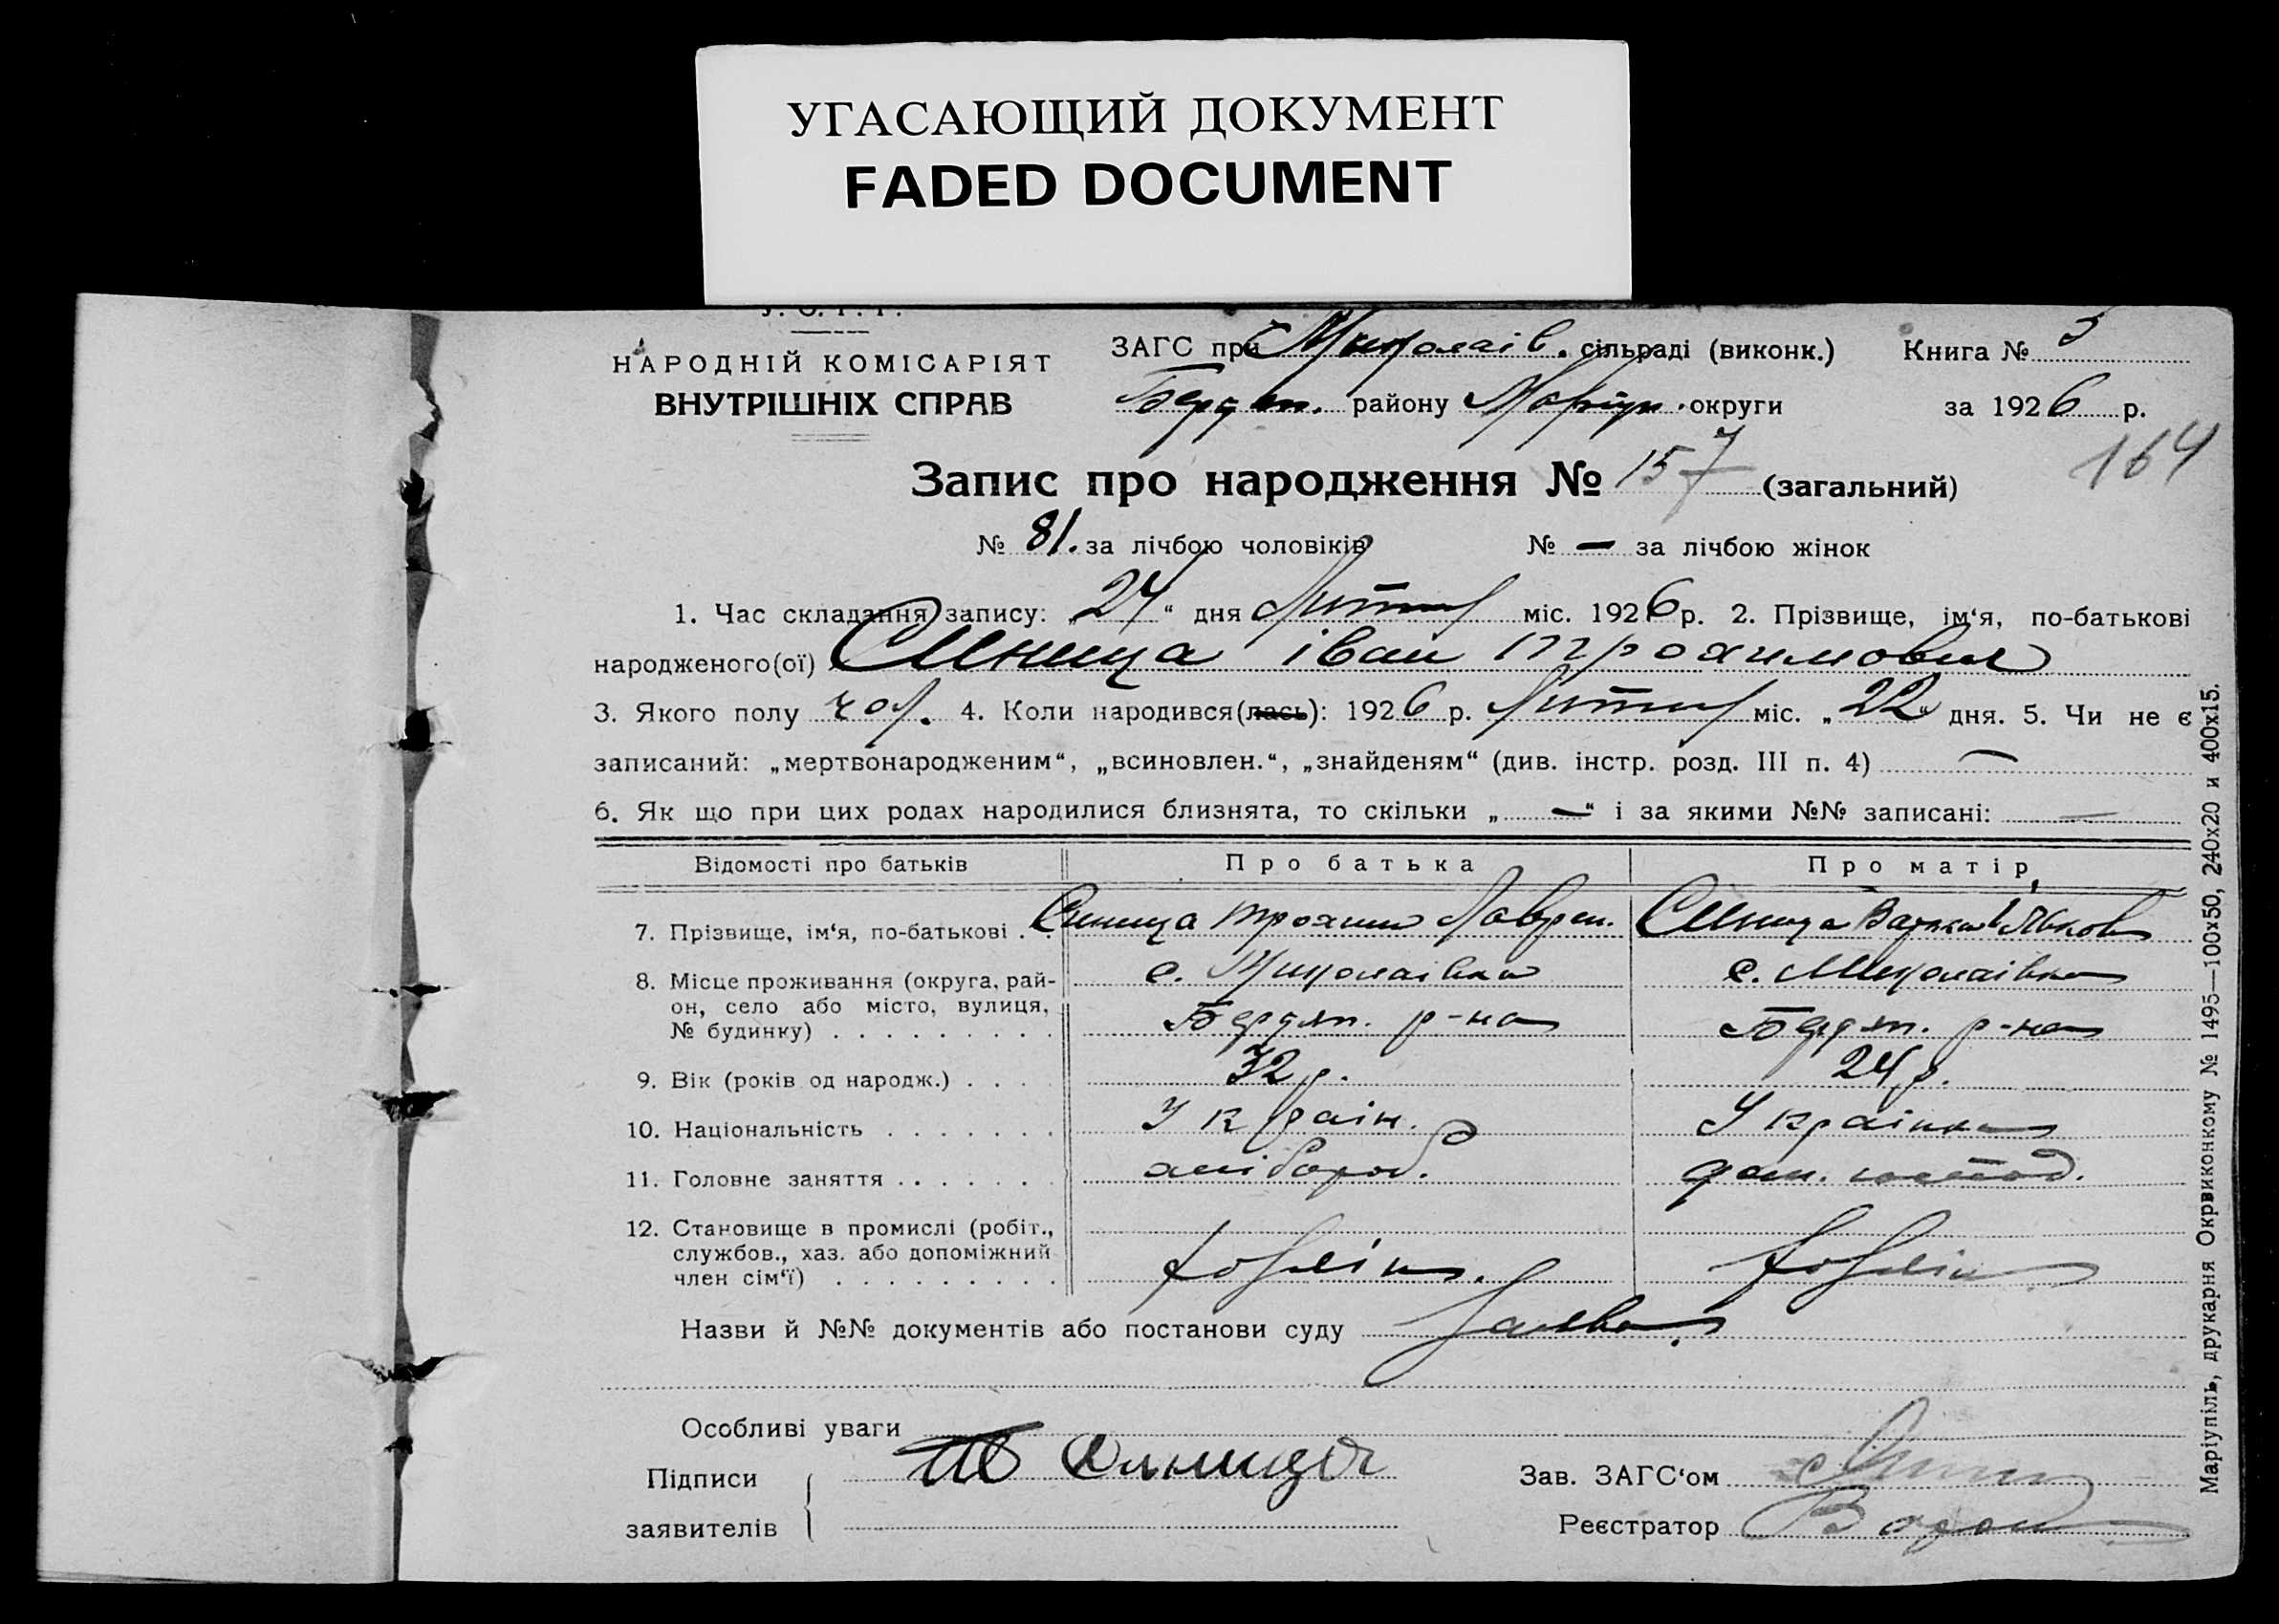 УГАСАЮЩИЙ ДОКУМЕНТ
FADED DOCUMENT
НАРОДНІЙ КОМІСАРІЯТ
ВНУТРІШНІХ СПРАВ
ЗАГС при Миколаїв. сільраді (виконк.) Книга № 5
Бердян. району Маріуп. округи за 1926 р.
164
Запис про народження № 157 (загальний)
№ 81. за лічбою чоловіків № — за лічбою жінок
1. Час складання запису: „24“ дня Лютий міс. 1926 р. 2. Прізвище, ім‘я, по-батькові
народженого(ої) Синица іван трохимович
3. Якого полу чол. 4. Коли народився(лась): 1926 р. Лютий міс. „22“ дня. 5. Чи не є
записаний: „мертвонародженим“, „всиновлен.“, „знайденям“ (див. інстр. розд. III п. 4) —
6. Як що при цих родах народилися близнята, то скільки „—“ і за якими №№ записані: —
Відомості про батьків Про батька Про матір
7. Прізвище, ім‘я, по-батькові . . Синица трохим Лаврен. Синица Яков
8. Місце проживання (округа, рай- с. Миколаівка с. Миколаівка
он, село або місто, вулиця,
№ будинку) . . . . . . . . . р-на р-на
9. Вік (років од народж.) . . . . 32 р. 24 р.
10. Національність . . . . . . . Украін. Украінка
11. Головне заняття . . . . . . . хлібороб. дом. господ.
12. Становище в промислі (робіт.,
службов., хаз. або допоміжний
член сім‘ї) . . . . . . . . .
Назви й №№ документів або постанови суду Заява.
Особливі уваги
Підписи Синиця Зав. ЗАГС‘ом
заявителів Реєстратор
Маріупіль, друкарня Окрвиконкому № 1495—100х50, 240х20 и 400х15.